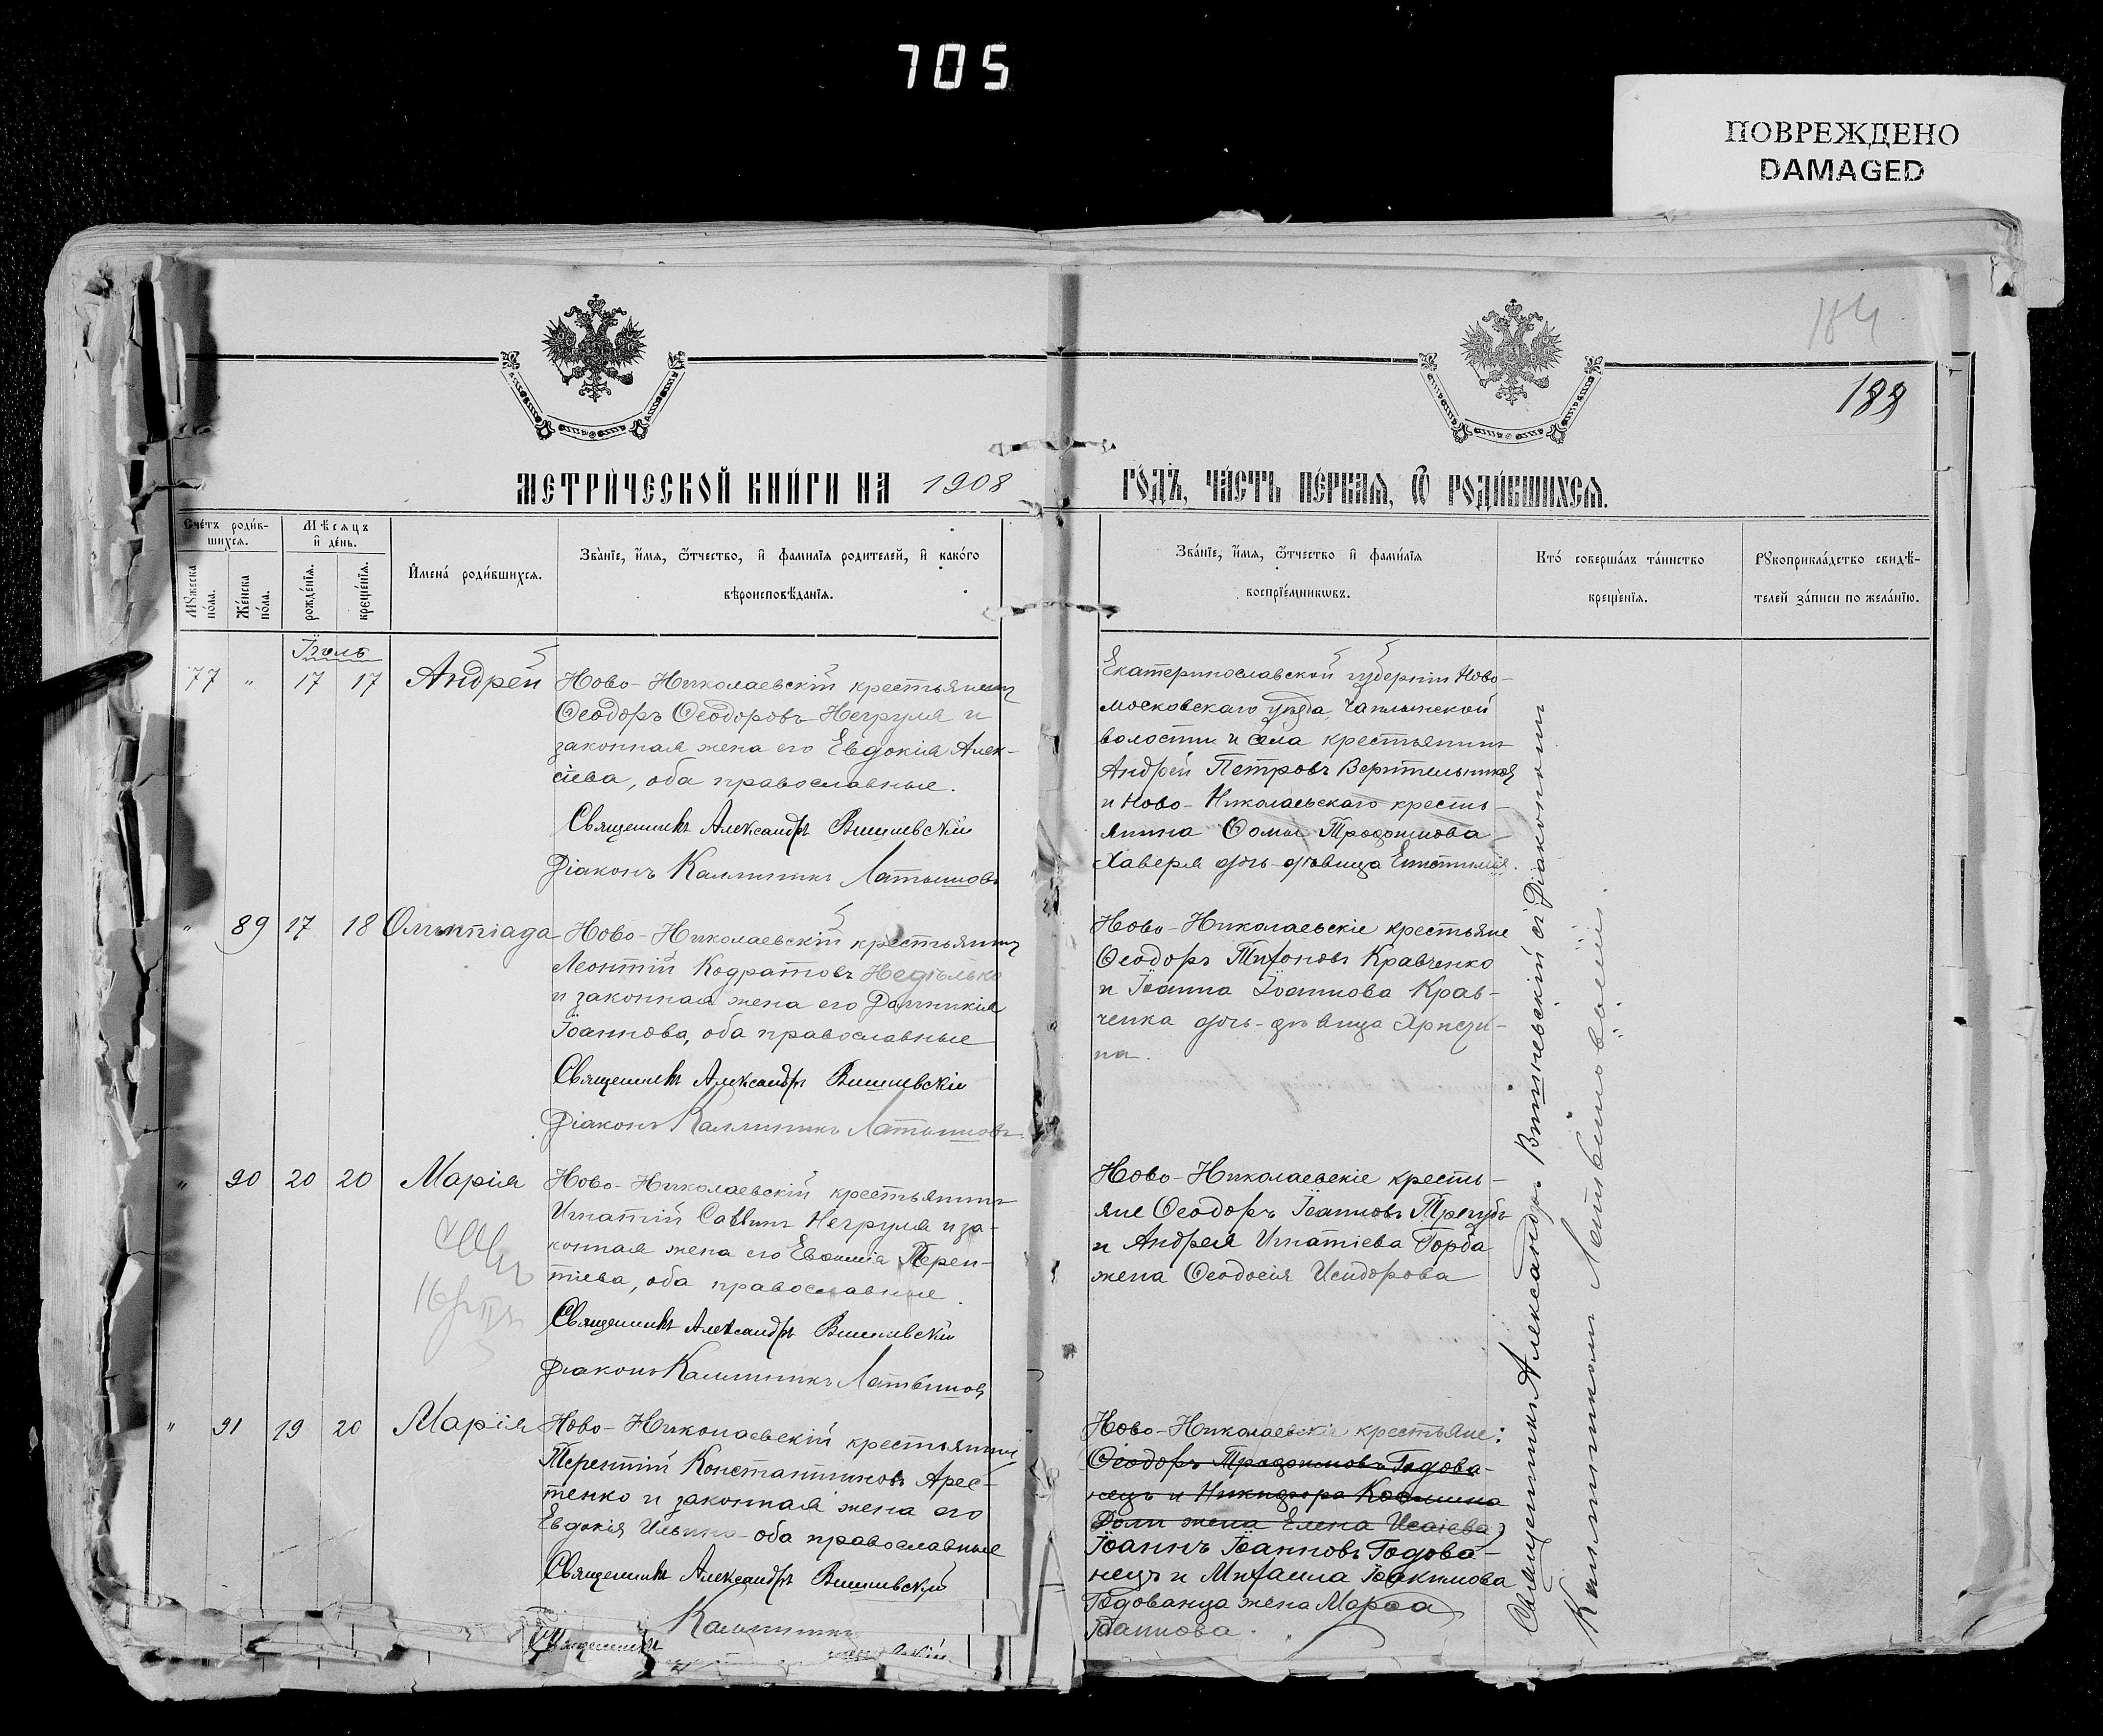 705
ПОВРЕЖДЕНО
DAMAGED
184
188
МЕТРИ́ЧЕСКОЙ КНИ́ГИ НА 1908
ГО́ДЪ, ЧА́СТЬ ПЕ́РВАЯ, Ѡ РОДИ́ВШИХСЯ.
Сче́тъ роди́в-
шихся.
Мѣсяцъ
и҆ де́нь.
Мꙋжеска по́ла.
Же́нска по́ла.
рожде́нїя.
креще́нїя.
И҆мена́ роди́вшихся.
Зва́нїе, и҆́мя, ѻ҆́тчество, и҆ фамилїя родителей, и҆ како́го
вѣроисповѣ́данїя.
Зва́нїе, и҆́мя, ѻ҆́тчество и҆ фами́лїя
воспрїе́мникѡвъ.
Кто́ соверша́лъ та́инство
креще́нїя.
Рꙋкоприкла́дство свидѣ́-
телей за́писи по жела́нїю.
Іюль
77 " 17 17 Андрей
Ново-Николаевскій крестьянинъ
Ѳеодоръ Ѳеодоровъ Негруля и
законная жена его Евдокія Алек-
сіева, оба православные.
Священникъ Александръ Вишневскій
Діаконъ Каллиникъ Латышовъ
Екатеринославской губерніи Ново-
московскаго уѣзда, Чаплынской
волости и села крестьянинъ
Андрей Петровъ
и Ново-Николаевскаго кресть-
янина Ѳомы Трофимова
Хаверя дочь-дѣвица
" 89 17 18 Олимпіада
Ново-Николаевскій крестьянинъ
Леонтій Кодратовъ Недѣлько
и законная жена его Домникія
Іоаннова, оба православные
Священникъ Александръ Вишневскій
Діаконъ Каллиникъ Латышовъ
Ново-Николаевскіе крестьяне
Ѳеодоръ Тихоновъ Кравченко
и Іоанна Іоаннова Крав-
ченка дочь-дѣвица Христи-
на.
" 90 20 20 Марія
Ново-Николаевскій крестьянинъ
Игнатій Саввинъ Негруля и за-
конная жена его Евѳимія Терен-
тіева, оба православные.
Священникъ Александръ Вишневскій
Діаконъ Каллиникъ Латышовъ
Ново-Николаевскіе кресть-
яне Ѳеодоръ Іоанновъ Трегубъ
и Андрея Игнатіева Горба
жена Ѳеодосія Исидорова
" 91 19 20 Марія
Ново-Николаевскій крестьянинъ
Терентій Константиновъ Арес-
тенко и законная жена его
Евдокія Ильина оба православные
Священникъ Александръ Вишневскій
Каллиникъ
Священникъ
Ново-Николаевскіе крестьяне:
Ѳеодоръ Трофимовъ Годова-
нецъ и Никифора Косьмина
жена Елена Исаіева
Іоаннъ Іоанновъ Годова-
нецъ и Михаила Іоакимова
Годованца жена Марѳа
Іоаннова.
Священникъ Александръ Вишневскій съ Діакономъ
Каллиникомъ